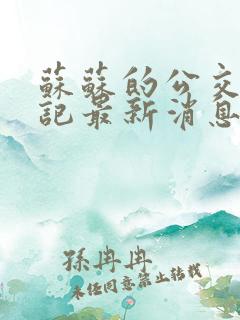 蘇蘇的公交
記最新消息
孫冉冉
未经同意禁止转载